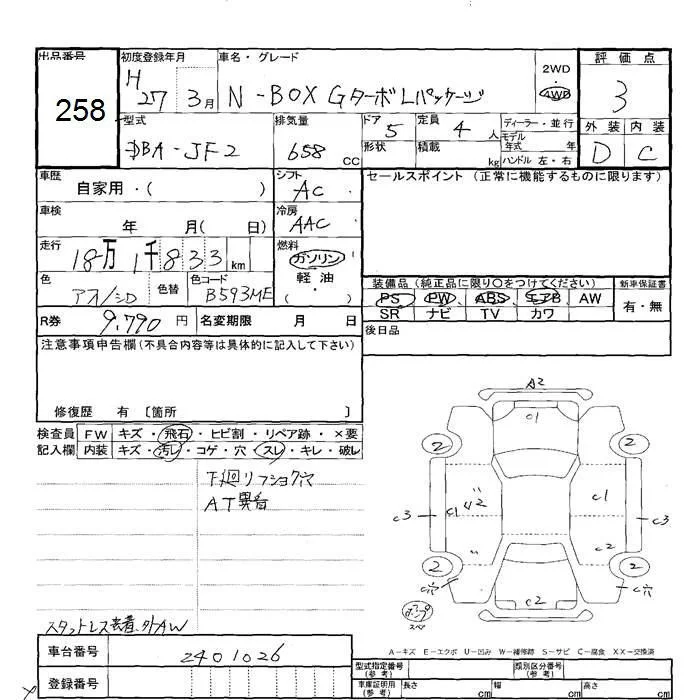 出品番号
258
初度登録年月
H 27 3月
車名・グレード
N-BOX GターボLパッケージ
2WD
4WD
評価点
3
外装 内装
D C
型式
DBA-JF2
排気量
658 CC
ドア 5
形状
定員 4 人
積載 kg
ディーラー・並行
モデル年式 年
ハンドル 左・右
車歴
自家用・( )
シフト
AC
セールスポイント (正常に機能するものに限ります)
車検
年 月( 日)
冷房
AAC
走行
18万1千833km
燃料
ガソリン・
軽油・
( )
色
アオ/シロ
色替
色コード
B593ME
装備品 (純正品に限り○をつけてください)
PS PW ABS エアB AW
SR ナビ TV カワ
新車保証書
有・無
R券 9.790 円
名変期限 月 日
後日品
注意事項申告欄(不具合内容等は具体的に記入して下さい)
修復歴 有 〔箇所 〕
検査員
記入欄
FW キズ・飛石・ヒビ割・リペア跡・×要
内装 キズ・汚レ・コゲ・穴・スレ・キレ・破レ
下廻リフショク穴
AT異音
スタットレス装着、外AW
A2
C1
2
2
C3
C1
U2
C1
C3
C2
2
2
C穴
C穴
C2
スペア
A-キズ E-エクボ U-凹み W-補修跡 S-サビ C-腐食 XX-交換済
車台番号
2401026
登録番号
型式指定番号 (参考)
類別区分番号 (参考)
車庫証明用 (参考)
長さ cm
幅 cm
高さ cm